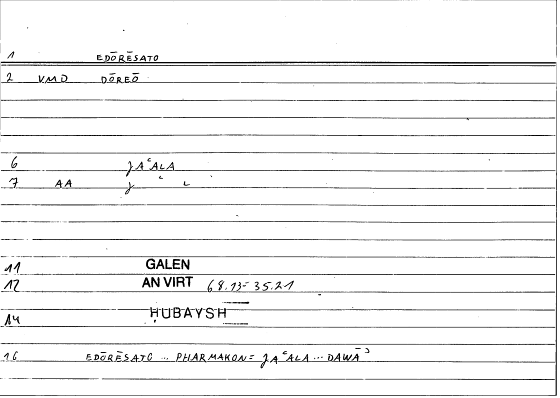 1 EDŌRĒSATO
2 VMD DŌREŌ
6 ǦAʿALA
7 AA ǧ ʿ L
11 GALEN
12 AN VIRT 68.13=35.21
14 ḤUBAYSH
16 EDŌRĒSATO ... PHARMAKON= ǦAʿALA ... DAWĀʾ